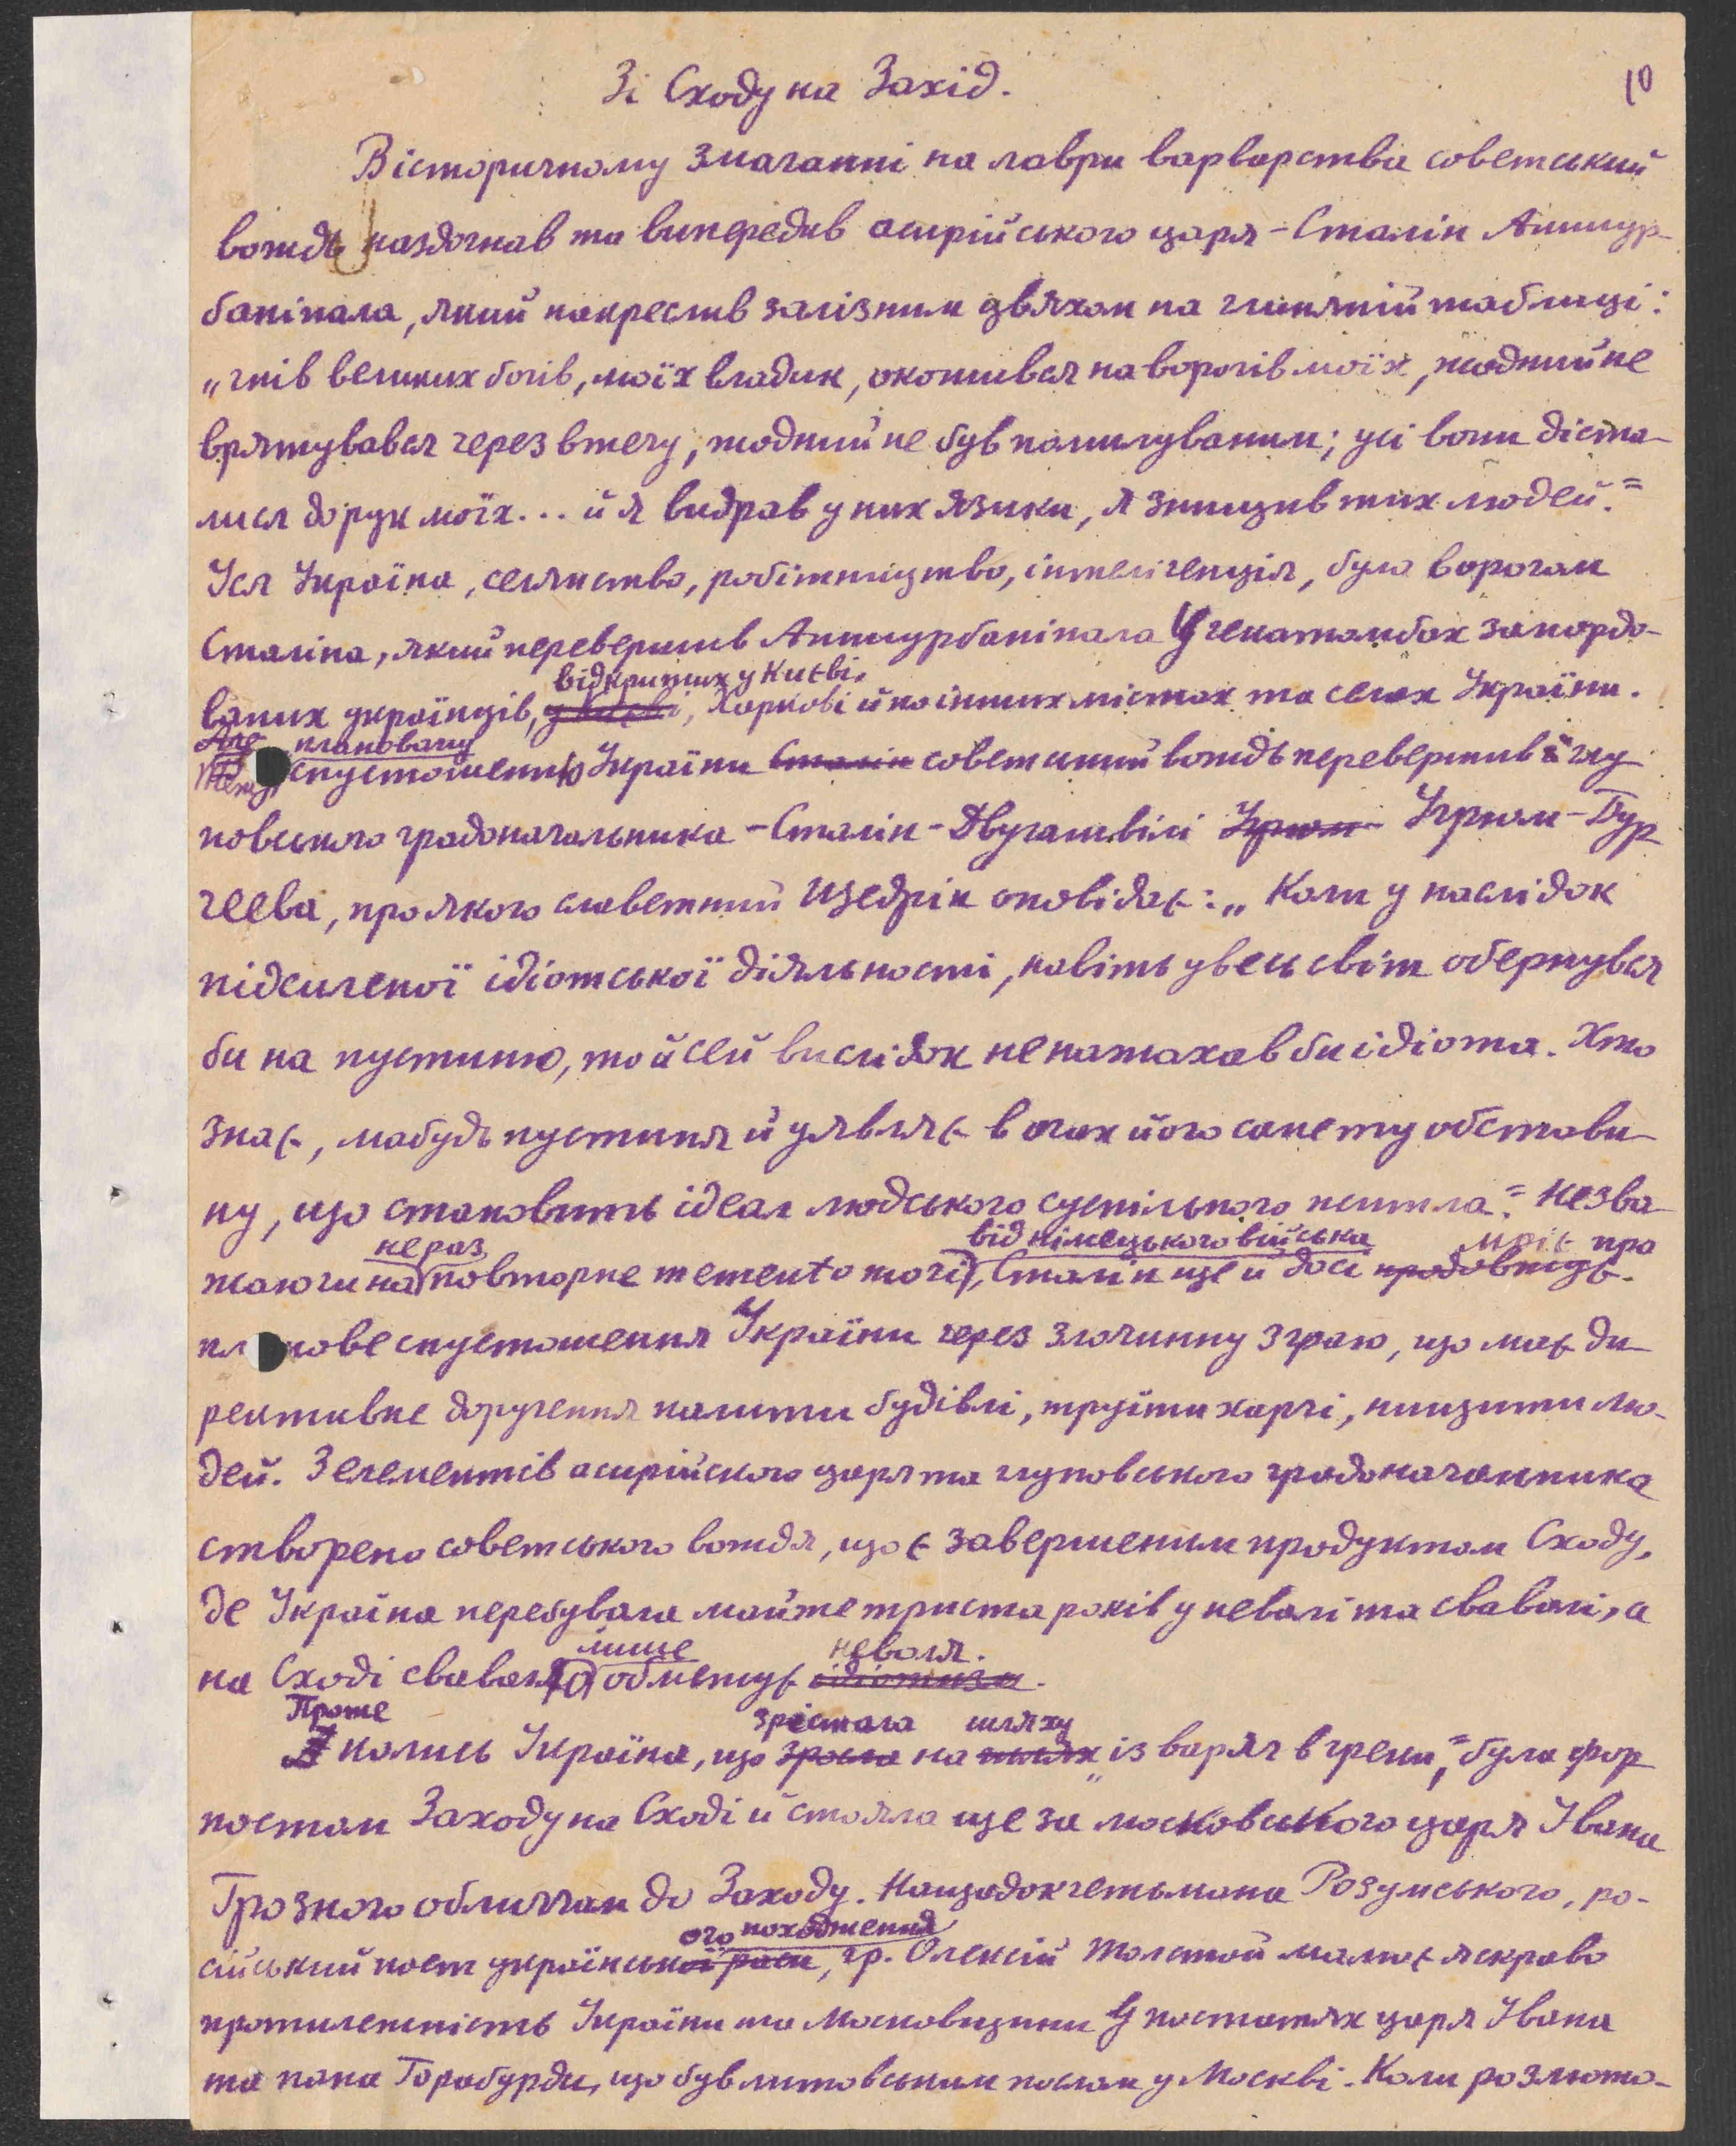 10
Зі Сходу на Захід.
В історичному змаганні на лаври варварства совєтський
вождь наздогнав та випередив асирійського царя - Сталін Ашшур-
баніпала, який накреслив залізним цвяхом на глиняній таблиці:
„гнів великих богів, моїх владик, окошився на ворогів моїх, жодний не
врятувався через втечу, жодний не був помилуваним; усі вони діста-
лися до рук моїх... й я видрав у них язики, я знищив тих людей."
Уся Україна, селянство, робітництво, інтелігенція, була ворогом
Сталіна, який перевершив Ашшурбаніпала У гекатомбах закордо-
відкритих у Києві,
ваних українців, у Києві, Харкові й по інших містах та селах України.
Але плановану
спустошенню України Сталін совєтський вождь перевершив й глу
повського градоначальника - Сталін - Двугашвілі Угрюм Угрюм-Бур
чеєва, про якого славетний Щедрін оповідає: „Коли у наслідок
підсиленої ідіотської діяльності, навіть увесь світ обернувся
би на пустиню, то й сей вислідок не натахав би ідіота. Хто
знає, мабудь пустиня й уявляє в очах його саме ту обстави-
ну, що становить ідеал людського суспільного життя." Незва-
не раз від німецького війська мріє про
жаючи на повторне memento mori, Сталін ще й досі продовжує.
планове спустошення України через злочинну зграю, що має ди-
рективне доручення палити будівлі, труїти харчі, нищити лю-
дей. З елементів асирійского царя та глуповського градоначальника
створено совєтського вождя, що є завершеним продуктом Сходу,
де Україна перебувала майже триста років у неволі та сваволі, а
лише неволя.
на Сході сваволю обмежує ідіотизм.
Проте
А колись Україна, що
зрістала шляху
зросла на шлях „із варяг в греки", була фор
постом Заходу на Сході й стояла ще за московського царя Івана
Грозного обличчам до Заходу. Нащадок гетьмана Розумського, ро-
ого походження
сійський поет української раси, гр. Олексій Толстой малює яскраво
протилежність України та Московщини У постатях царя Івана
та пана Гарабурди, що був литовським послом у Москві. Коли розлюто-